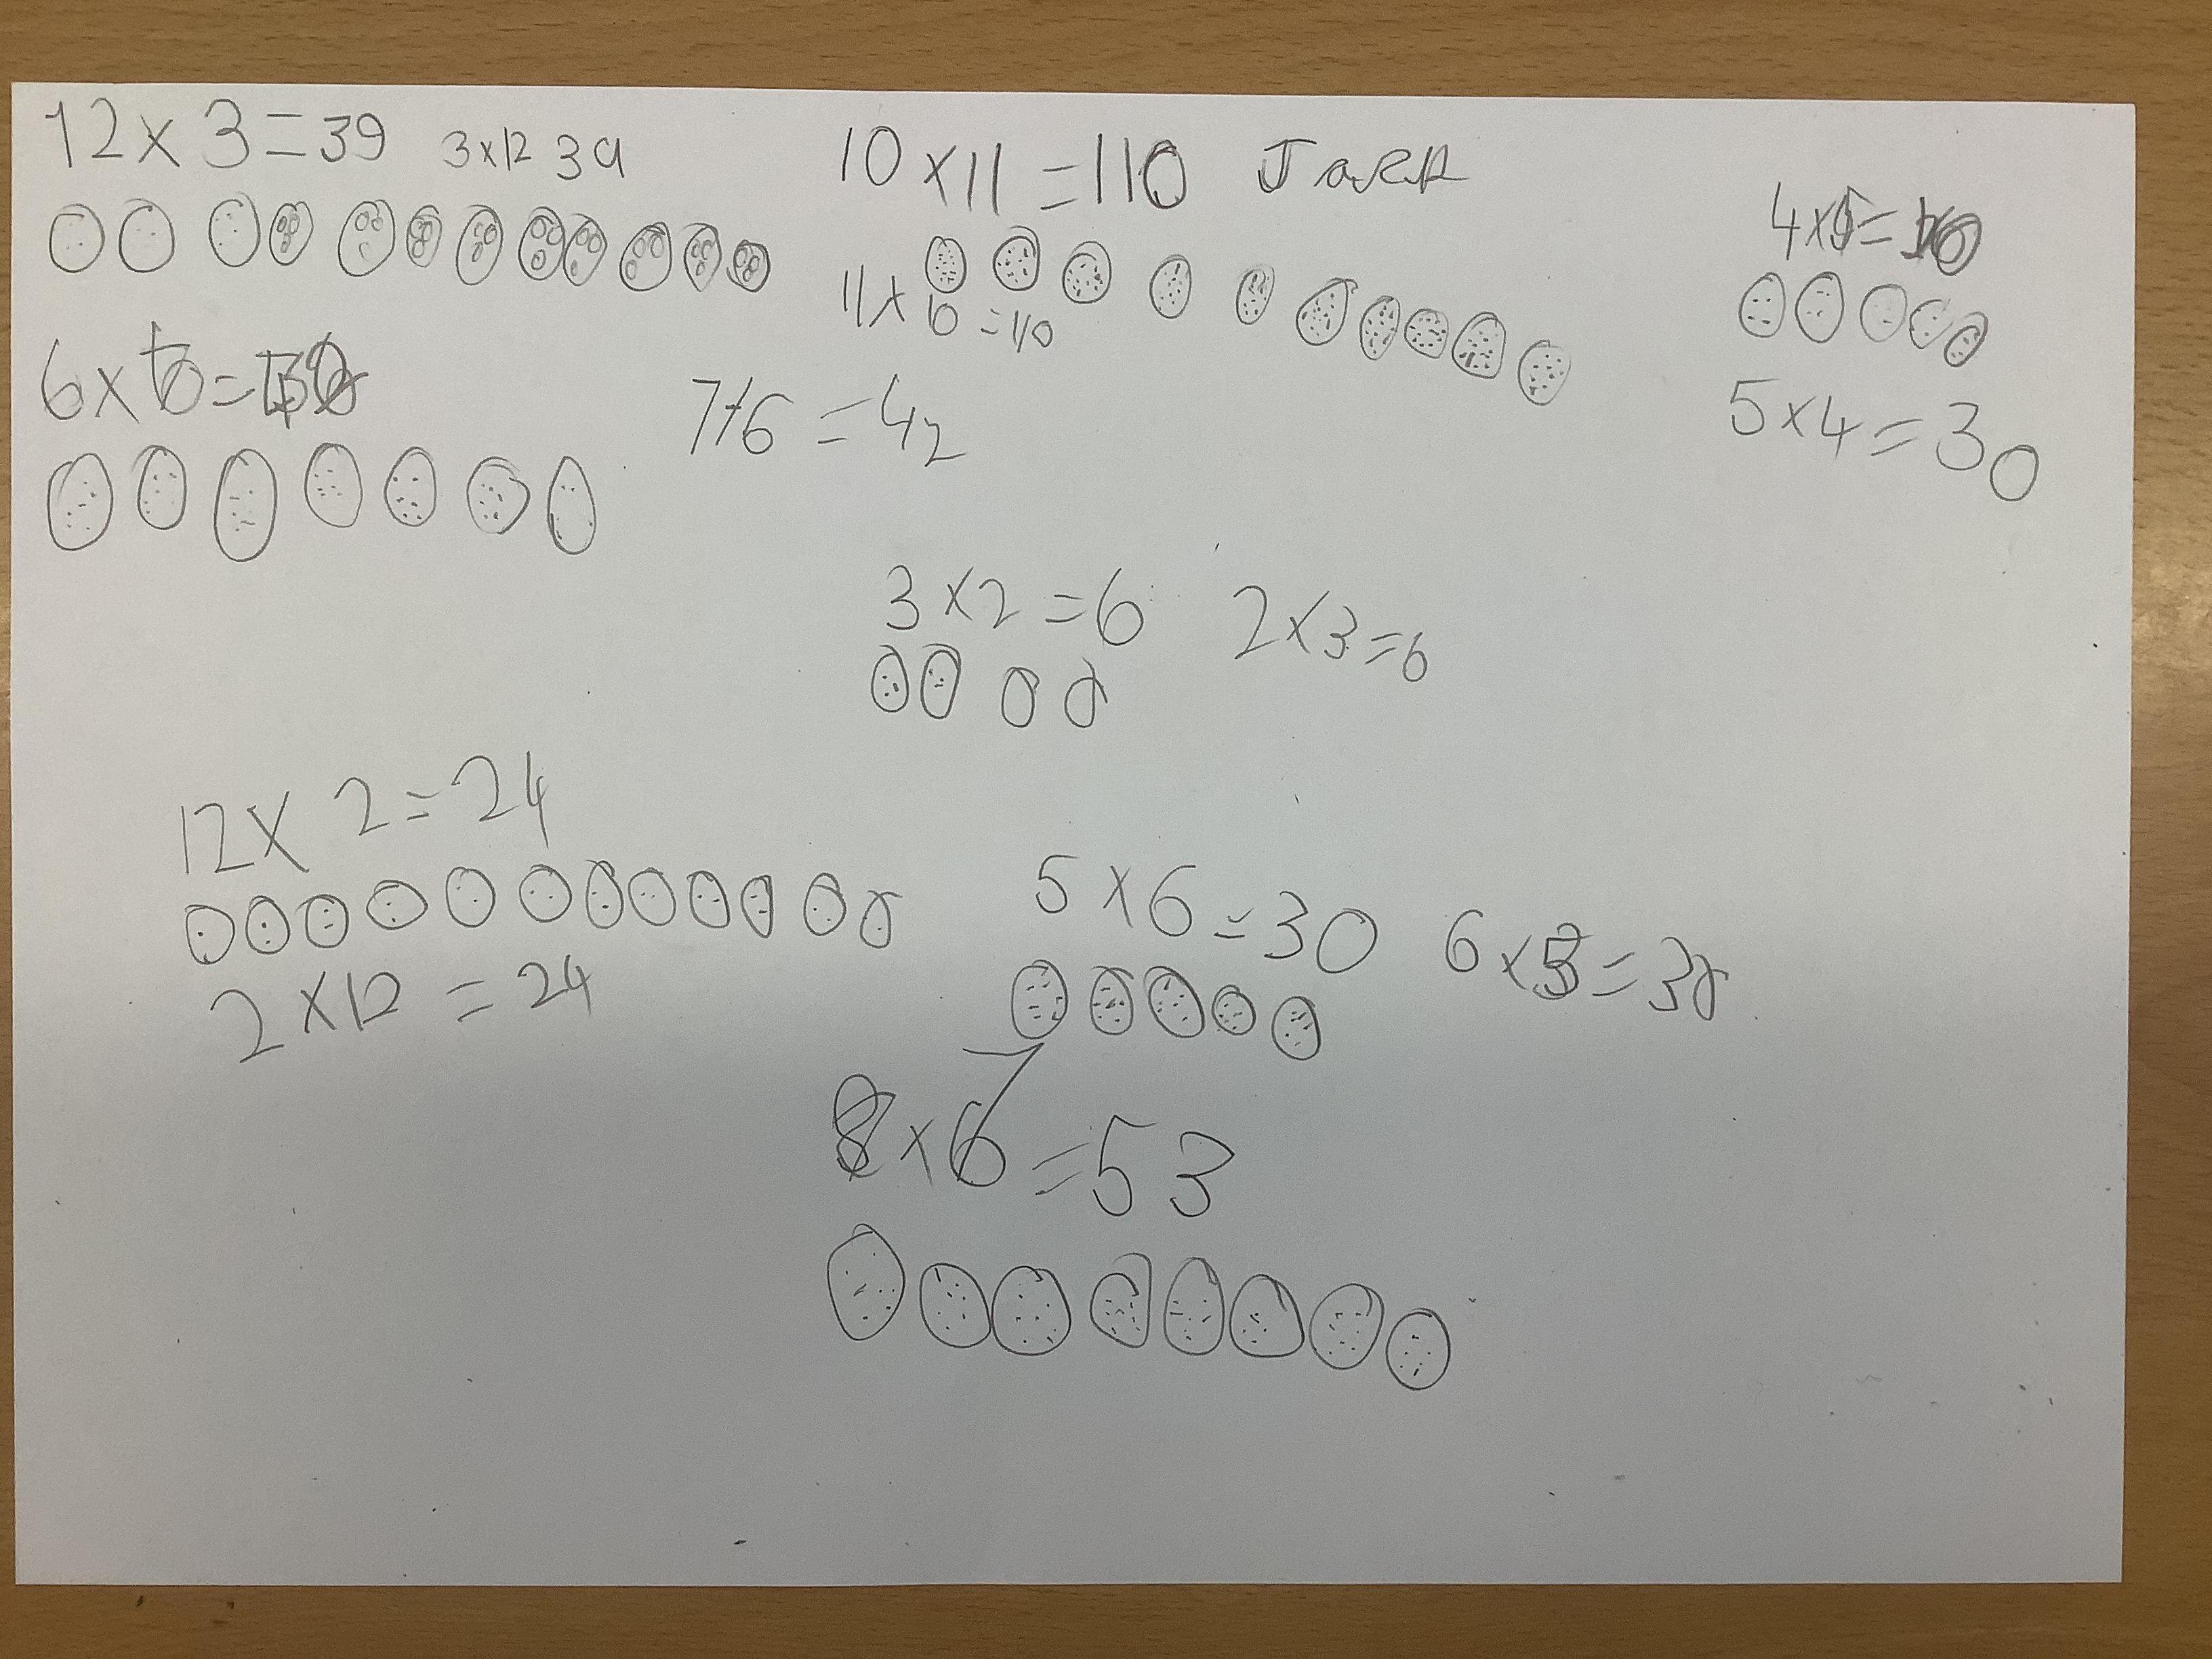 12 x 3 = 39 3 x 12 39
10 x 11 = 110
11 x 10 = 110
4 x 5 =
5 x 4 = 30
6 x
7 x 6 = 42
3 x 2 = 6 2 x 3 = 6
12 x 2 = 24
2 x 12 = 24
5 x 6 = 30 6 x 5 = 30
8 x 6 = 53